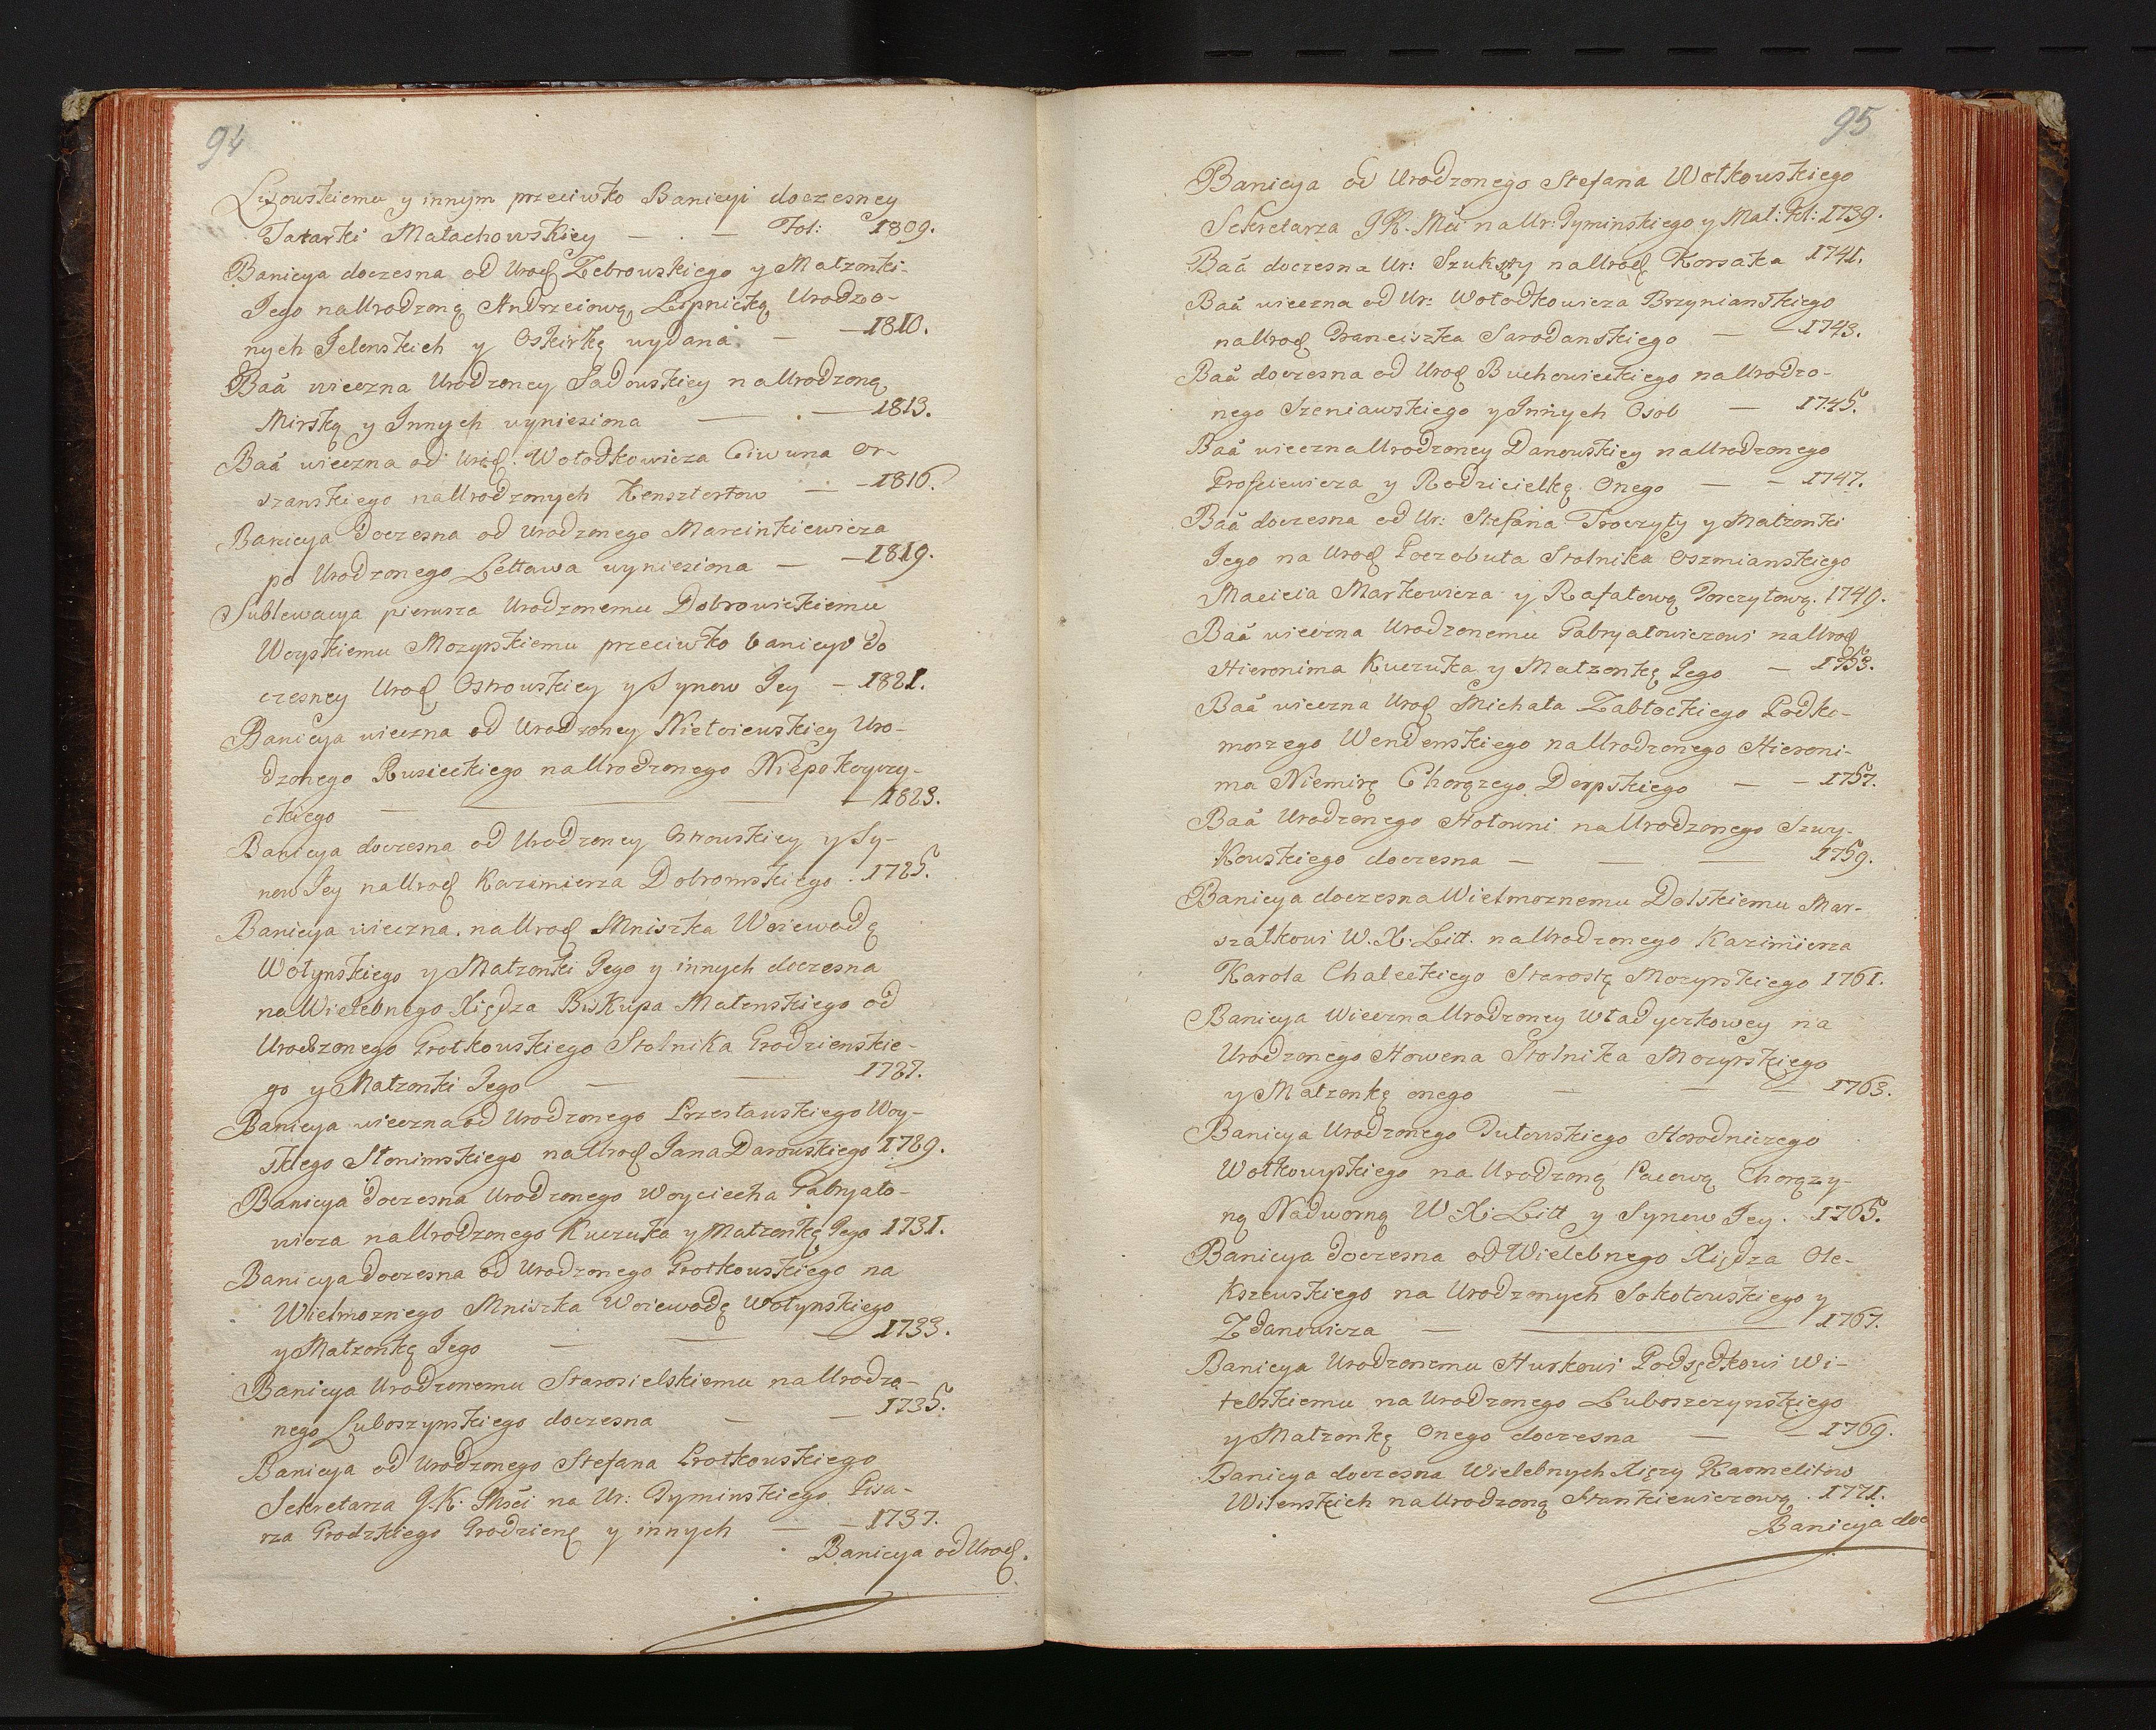 94
Lisowskiemu y innym przeciwko Banicyi doczesney
Tatarki Małachowskiey — . — Fol: 1809.
Banicya doczesna od Urod Zebrowskiego y Małzonki
Jego na Urodzoną Andrzeiową Lipnicką Urodzo-
nych Jelenskich y Oskirkę wydana. — — 1810.
Baã wieczna Urodzoney Sadowskiey na Urodzoną
Mirską y Innych wyniesiona — . — 1813.
Baã wieczna od Urod. Wołodkowicza Ciwuna Or-
szanskiego na Urodzonych Kensztortow — — 1816.
Banicya Doczesna od Urodzonego Marcinkiewicza
po Urodzonego Lettawa wyniesiona — — 1819.
Sublewacya pierwsza Urodzonemu Dobrowickiemu
Woyskiemu Mozyrskiemu przeciwko banicyi do
czesney Urod Ostrowskiey y Synow Jey — 1821.
Banicya wieczna od Urodzoney Nietwiewskiey Uro-
dzonego Rusieckiego na Urodzonego Niepokoyczy-
ckiego — — — 1823.
Banicya doczesna od Urodzoney Ostrowskiey y Sy-
now Jey na Urod Kazimierza Dobromskiego . 1725.
Banicya wieczna . na Urod Mniszka Woiewodę
Wołynskiego y Małzonki Jego y innych doczesna
na Wielebnego Xiędza Biskupa Malenskiego od
Urodzonego Grotkowskiego Stolnika Grodzienskie-
go y Małzonki Jego — — 1727.
Banicya wieczna od Urodzonego Przesławskiego Woy-
skiego Słonimskiego na Urod Jana Darowskiego 1729.
Banicya Doczesna Urodzonego Woyciecha Gabryało-
wicza na Urodzonego Kuczuka y Małzonkę Jego 1731.
Banicya Doczesna od Urodzonego Grotkowskiego na
Wielmoznego Mniszka Woiewodę Wołynskiego
y Małzonkę Jego — — — 1733.
Banicya Urodzonemu Starosielskiemu na Urodzo-
nego Luboszynskiego doczesna — — 1735.
Banicya od Urodzonego Stefana Protkowskiego
Sekretarza J. K. Mści na Ur: Tyminskiego Pisa-
rza Grodzkiego Grodzień y innych — — 1737.
Banicya od Urod.
95
Banicya od Urodzonego Stefana Wotkowskiego
Sekretarza J K. Mci na Ur: Tyminskiego y Mał: Fol: 1739.
Baã doczesna Ur: Szukszty na Urod Korsaka 1741.
Baã wieczna od Ur: Wołodkowicza Brzynianskiego
na Urod Franciszka Sarodanskiego — — 1743.
Baã doczesna od Urod Buchowieckiego na Urodzo-
nego Szeniawskiego y Innych Osob — 1745.
Baã wieczna Urodzoney Danowskiey na Urodzonego
Proscewicza y Rodzicielkę Onego — — 1747.
Baã doczesna od Ur: Stefana Troczyły y Małzonki
Jego na Urod Poczobuta Stolnika Oszmianskiego
Macieia Markowicza y Rafałową Porczytową. 1749.
Baã wieczna Urodzonemu Gabryałowiczowi na Urod
Hieronima Kuczuka y Małzonkę Jego — 1753.
Baã wieczna Urod Michała Zabłockiego Podko-
morzego Wendenskiego na Urodzonego Hieroni-
ma Niemirę Chorązego Derpskiego — — 1757.
Baã Urodzonego Hołowni na Urodzonego Szwy-
kowskiego doczesna — — — 1759.
Banicya doczesna Wielmoznemu Dolskiemu Mar-
szałkowi W. X. Litt. na Urodzonego Kazimierza
Karola Chaleckiego Starostę Mozyrskiego 1761.
Banicya Wieczna Urodzoney Władyczkowey na
Urodzonego Howena Stolnika Mozyrskiego
y Małzonkę onego — — — 1763.
Banicya Urodzonego Tutowskiego Horodniczego
Wołkowyskiego na Urodzoną Pacową Chorązy-
nę Nadworną W. X. Litt y Synow Jey . 1765.
Banicya Doczesna od Wielebnego Xiędza Ole-
kszewskiego na Urodzonych Sokołowskiego y
Zdanowicza — — 1767.
Banicya Urodzonemu Hurkowi Podsędkowi Wi-
tebskiemu na Urodzonego Luboszczynskiego
y Małzonkę Onego doczesna — — 1769.
Banicya doczesna Wielebnych Xięzy Karmelitow
Wilenskich na Urodzoną Stankiewiczową . 1771.
Banicya doc